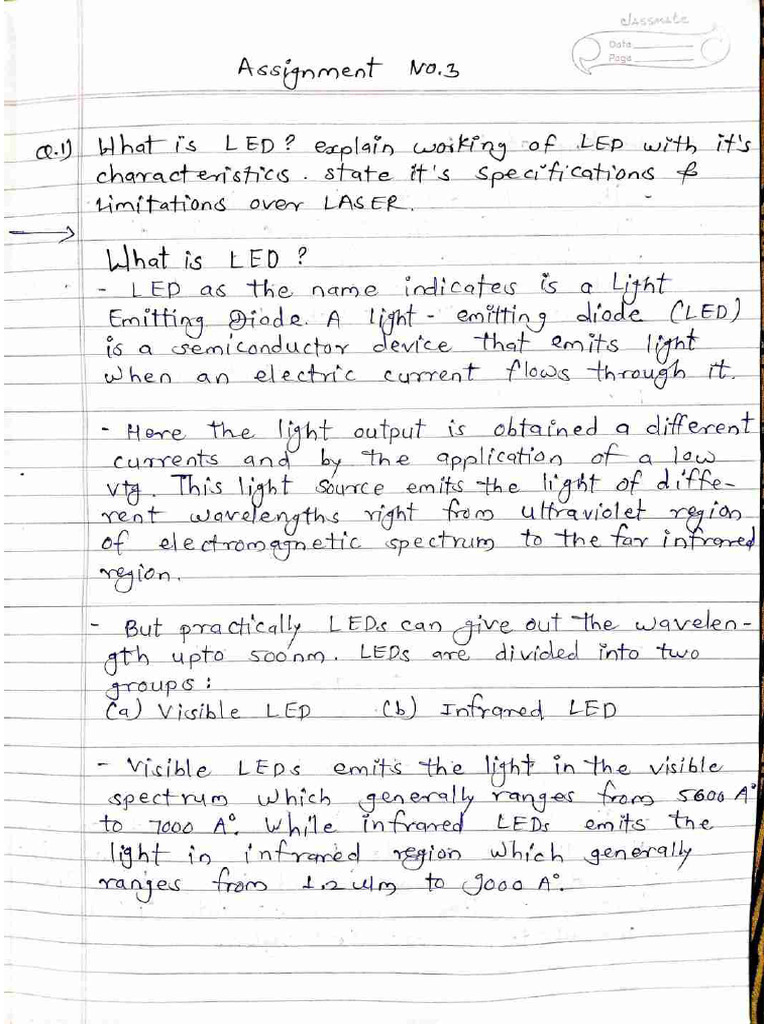 classmate
Date
Page
Assignment No.3
Q.1) What is LED? explain working of LED with it's
characteristics. state it's specifications &
Limitations over LASER.
What is LED?
- LED as the name indicates is a Light
Emitting Diode. A light - emitting diode (LED)
is a semiconductor device that emits light
when an electric current flows through it.
- Here the light output is obtained a different
currents and by the application of a low
vtg. This light source emits the light of diffe-
rent wavelengths right from ultraviolet region
of electromagnetic spectrum to the far infrared
region.
- But practically LEDs can give out the wavelen-
gth upto 500nm. LEDs are divided into two
groups:
(a) Visible LED (b) Infrared LED
- Visible LEDs emits the light in the visible
spectrum which generally ranges from 5600 A°
to 7000 A°. While infrared LEDs emits the
light in infrared region which generally
ranges from 1.2 um to 9000 A°.